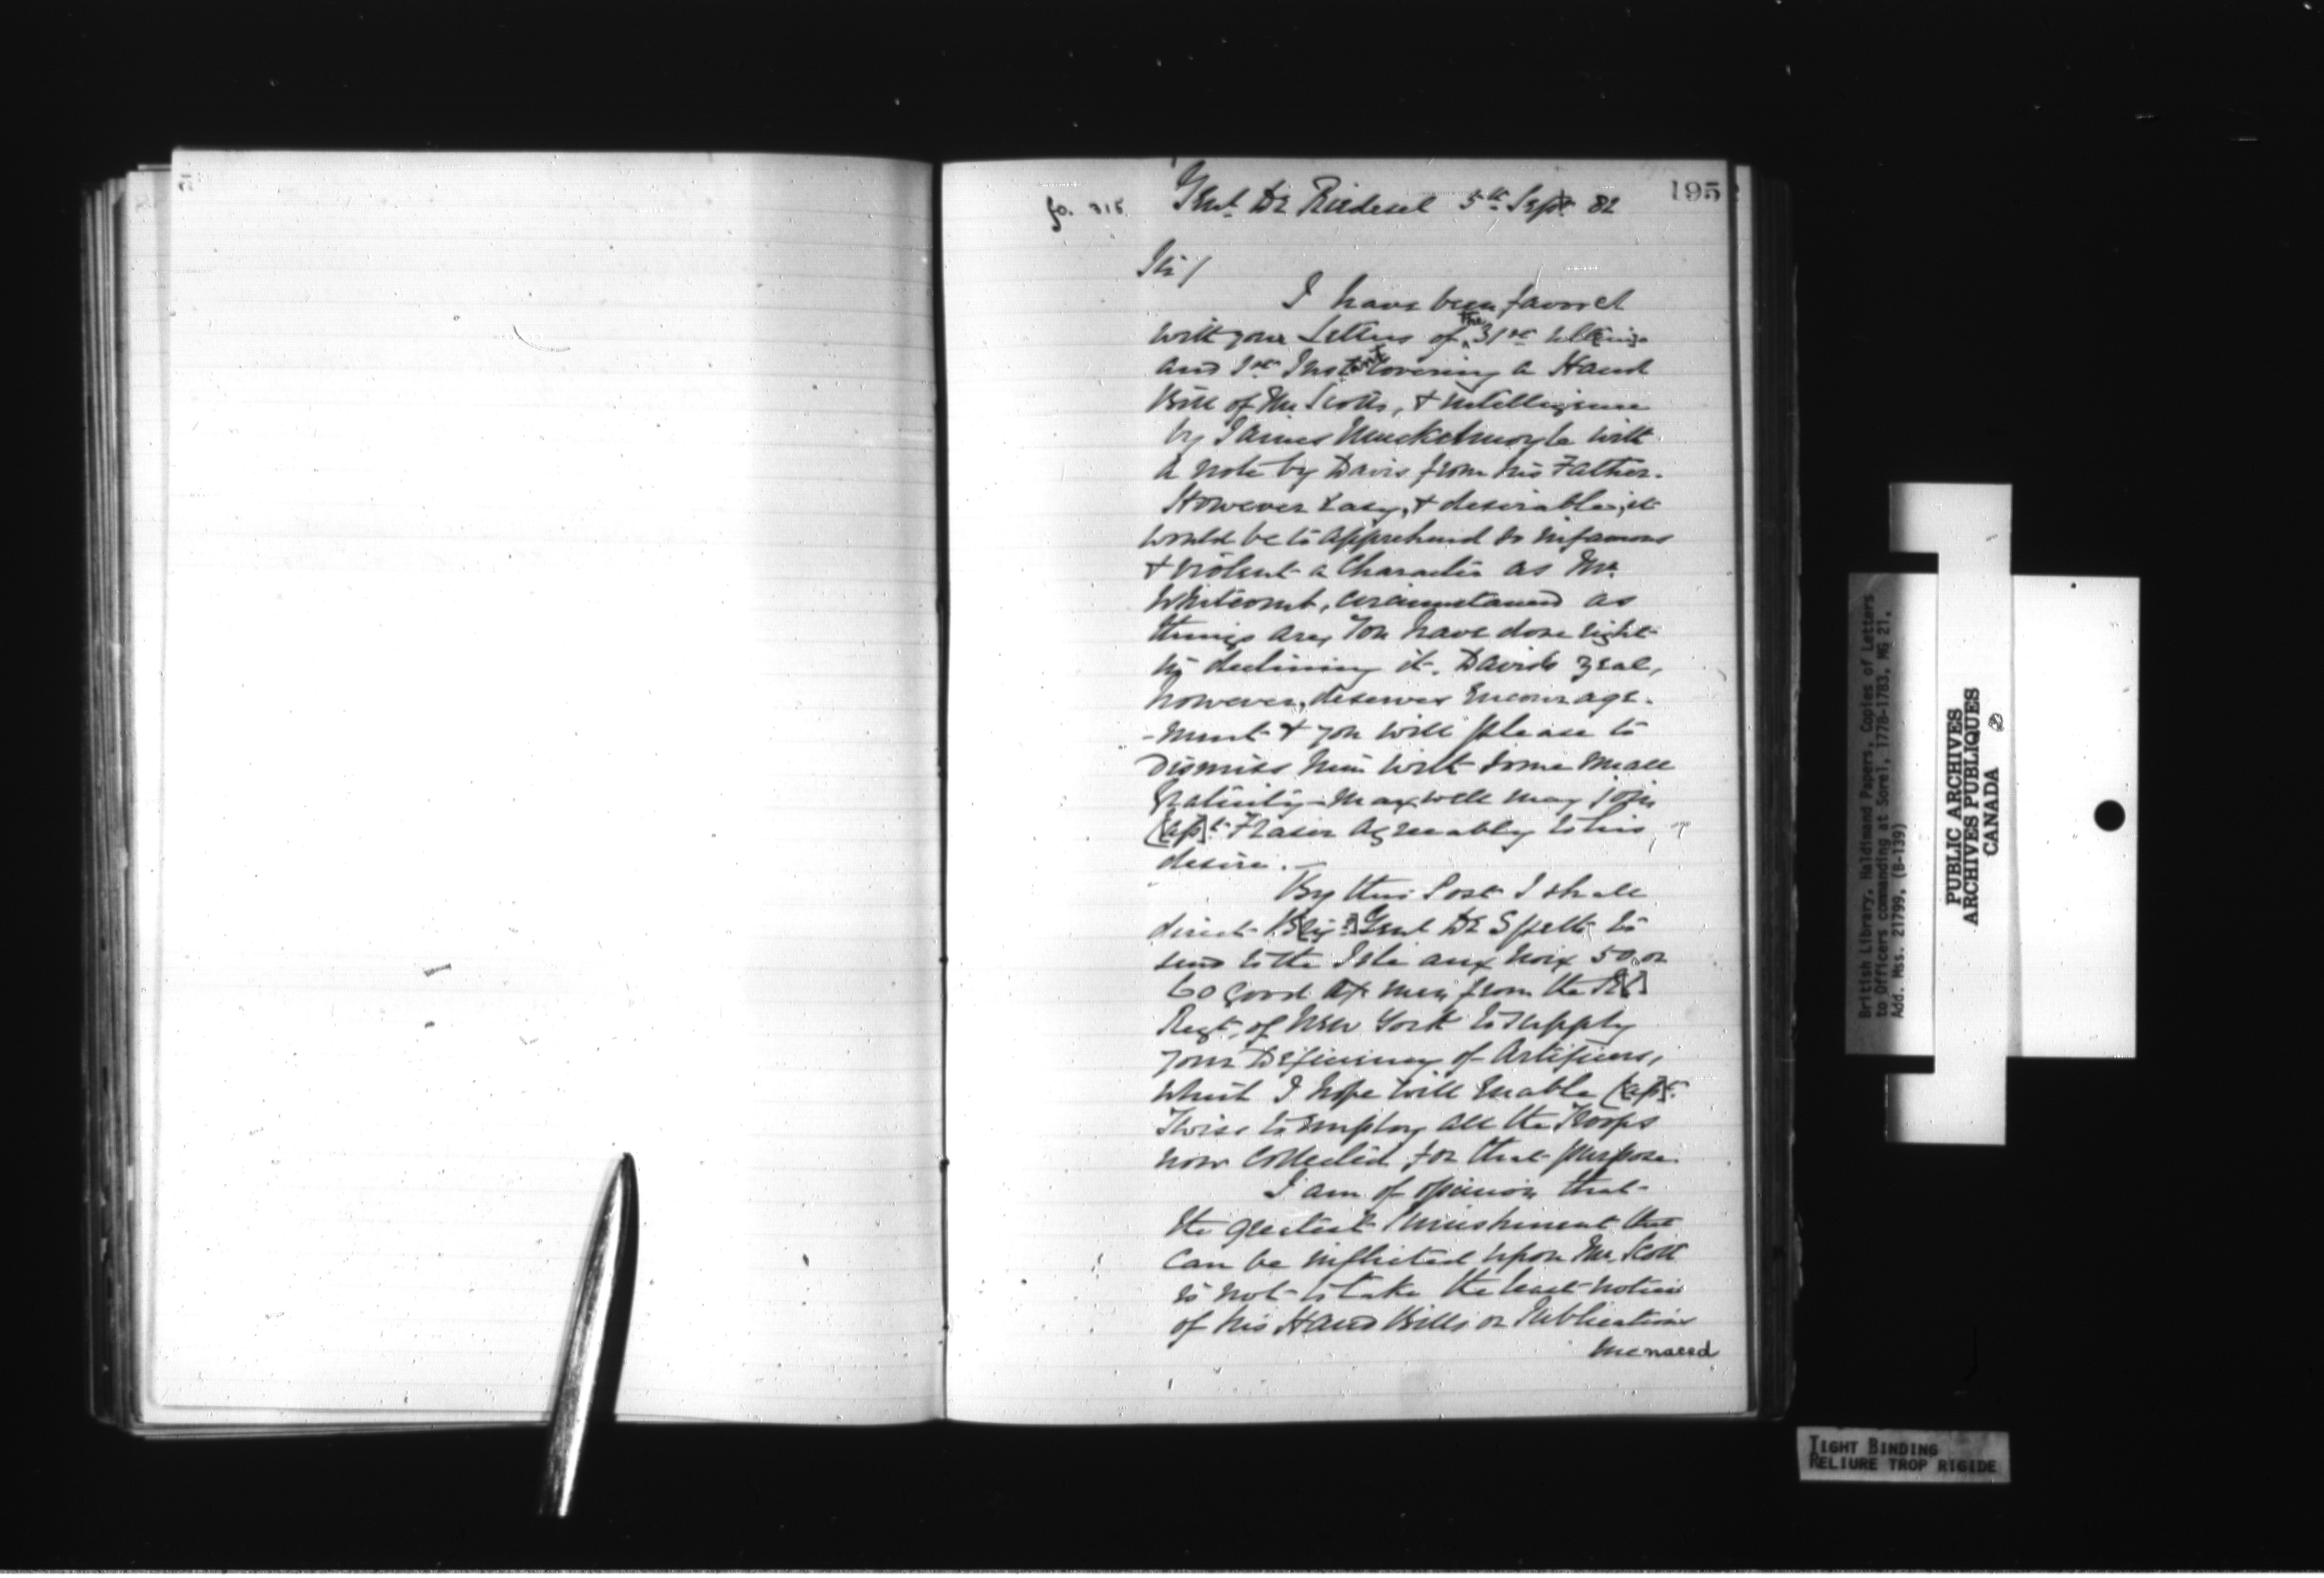 195
fo. 315 Genl De Riedesel 5th Sept. 82
Sir/
I have been favor'd
with your Letters of the 31st
and 1st Inst covering a Hand
Bill of Mr Scotts, & intelligence
by James with
a note by Davis from his Father.
However easy, & desirable, it
would be to apprehend so infamous
& violent a Character as Mr.
Whitcomb, circumstanced as
things are, You have done right
in declining it. Davids zeal,
however, deserves Encourage-
-ment & you will please to
dismiss him with some small
gratuity - Maxwell may join
[Cap]t. Fraser agreeably to his
desire. —
By this Post I shall
direct B[rig.r] Genl De Speth to
send to the Isle aux noix 50 or
60 good ax men from the R[]
Regt. of New York to supply
your Deficiency of Artificers,
which I hope will enable [Cap]t.
Twiss to employ all the Troops
now collected for that purpose.
I am of opinion that
the greatest Punishment that
can be inflicted upon Mr. Scott
is not to take the least notice
of his Hand Bills or Publications
menaced
British Library, Haldimand Papers, Copies of Letters
to Officers commanding at Sorel, 1778-1783, MG 21,
Add. Mss. 21799, (B-139)
PUBLIC ARCHIVES
ARCHIVES PUBLIQUES
CANADA
TIGHT BINDING
RELIURE TROP RIGIDE